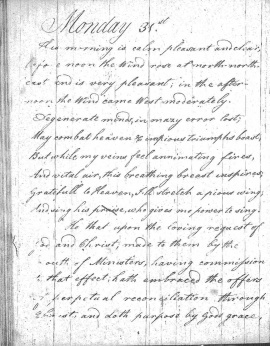 Monday 31.st
This morning is calm pleasant and clear,
before noon the Wind rose at north-north-
east and is very pleasant; in the after-
noon the Wind came West moderately.
Degenerate minds, in many error lost;
May combat heaven & impious triumphs boast,
But while my veins feel annimating fires,
And vital air, this breathing breast inspires;
Gratefull to Heaven, I'll stretch a pious wing;
And sing his praise, who gives me power to sing.
He that upon the loving request of
God and Christ, made to them by the
mouth of Ministers, having commission
to that effect, hath embraced the offers
of perpetual reconciliation through
Christ; and doth purpose by Gods grace,